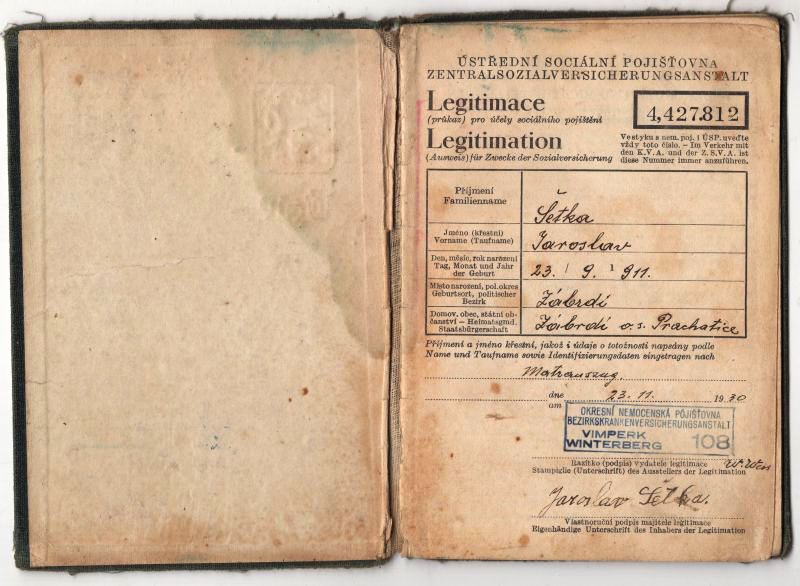 ÚSTŘEDNÍ SOCIÁLNÍ POJIŠŤOVNA
ZENTRALSOZIALVERSICHERUNGSANSTALT
Legitimace
(průkaz) pro účely sociálního pojištění
Legitimation
(Ausweis) für Zwecke der Sozialversicherung
4,427.812
Ve styku s nem. poj. i ÚSP. uveďte
vždy toto číslo. – Im Verkehr mit
den K.V.A. und der Z.S.V.A. ist
diese Nummer immer anzuführen.
Příjmení
Familienname
Šetka
Jméno (křestní)
Vorname (Taufname)
Jaroslav
Den, měsíc, rok narození
Tag, Monat und Jahr
der Geburt
23. / 9. 911.
Místo narození, pol. okres
Geburtsort, politischer
Bezirk
Zábrdí
Domov. obec, státní ob-
čanství – Heimatsgmd.
Staatsbürgerschaft
Zábrdí o.s. Prachatice
Příjmení a jméno křestní, jakož i údaje o totožnosti napsány podle
Name und Taufname sowie Identifizierungsdaten eingetragen nach
Matrauszug.
dne
am
23. 11. 1930
OKRESNÍ NEMOCENSKÁ POJIŠŤOVNA
BEZIRKSKRANKENVERSICHERUNGSANSTALT
VIMPERK
WINTERBERG 108
Razítko (podpis) vydatele legitimace
Stampiglie (Unterschrift) des Ausstellers der Legitimation
Jaroslav Šetka.
Vlastnoruční podpis majitele legitimace
Eigenhändige Unterschrift des Inhabers der Legitimation